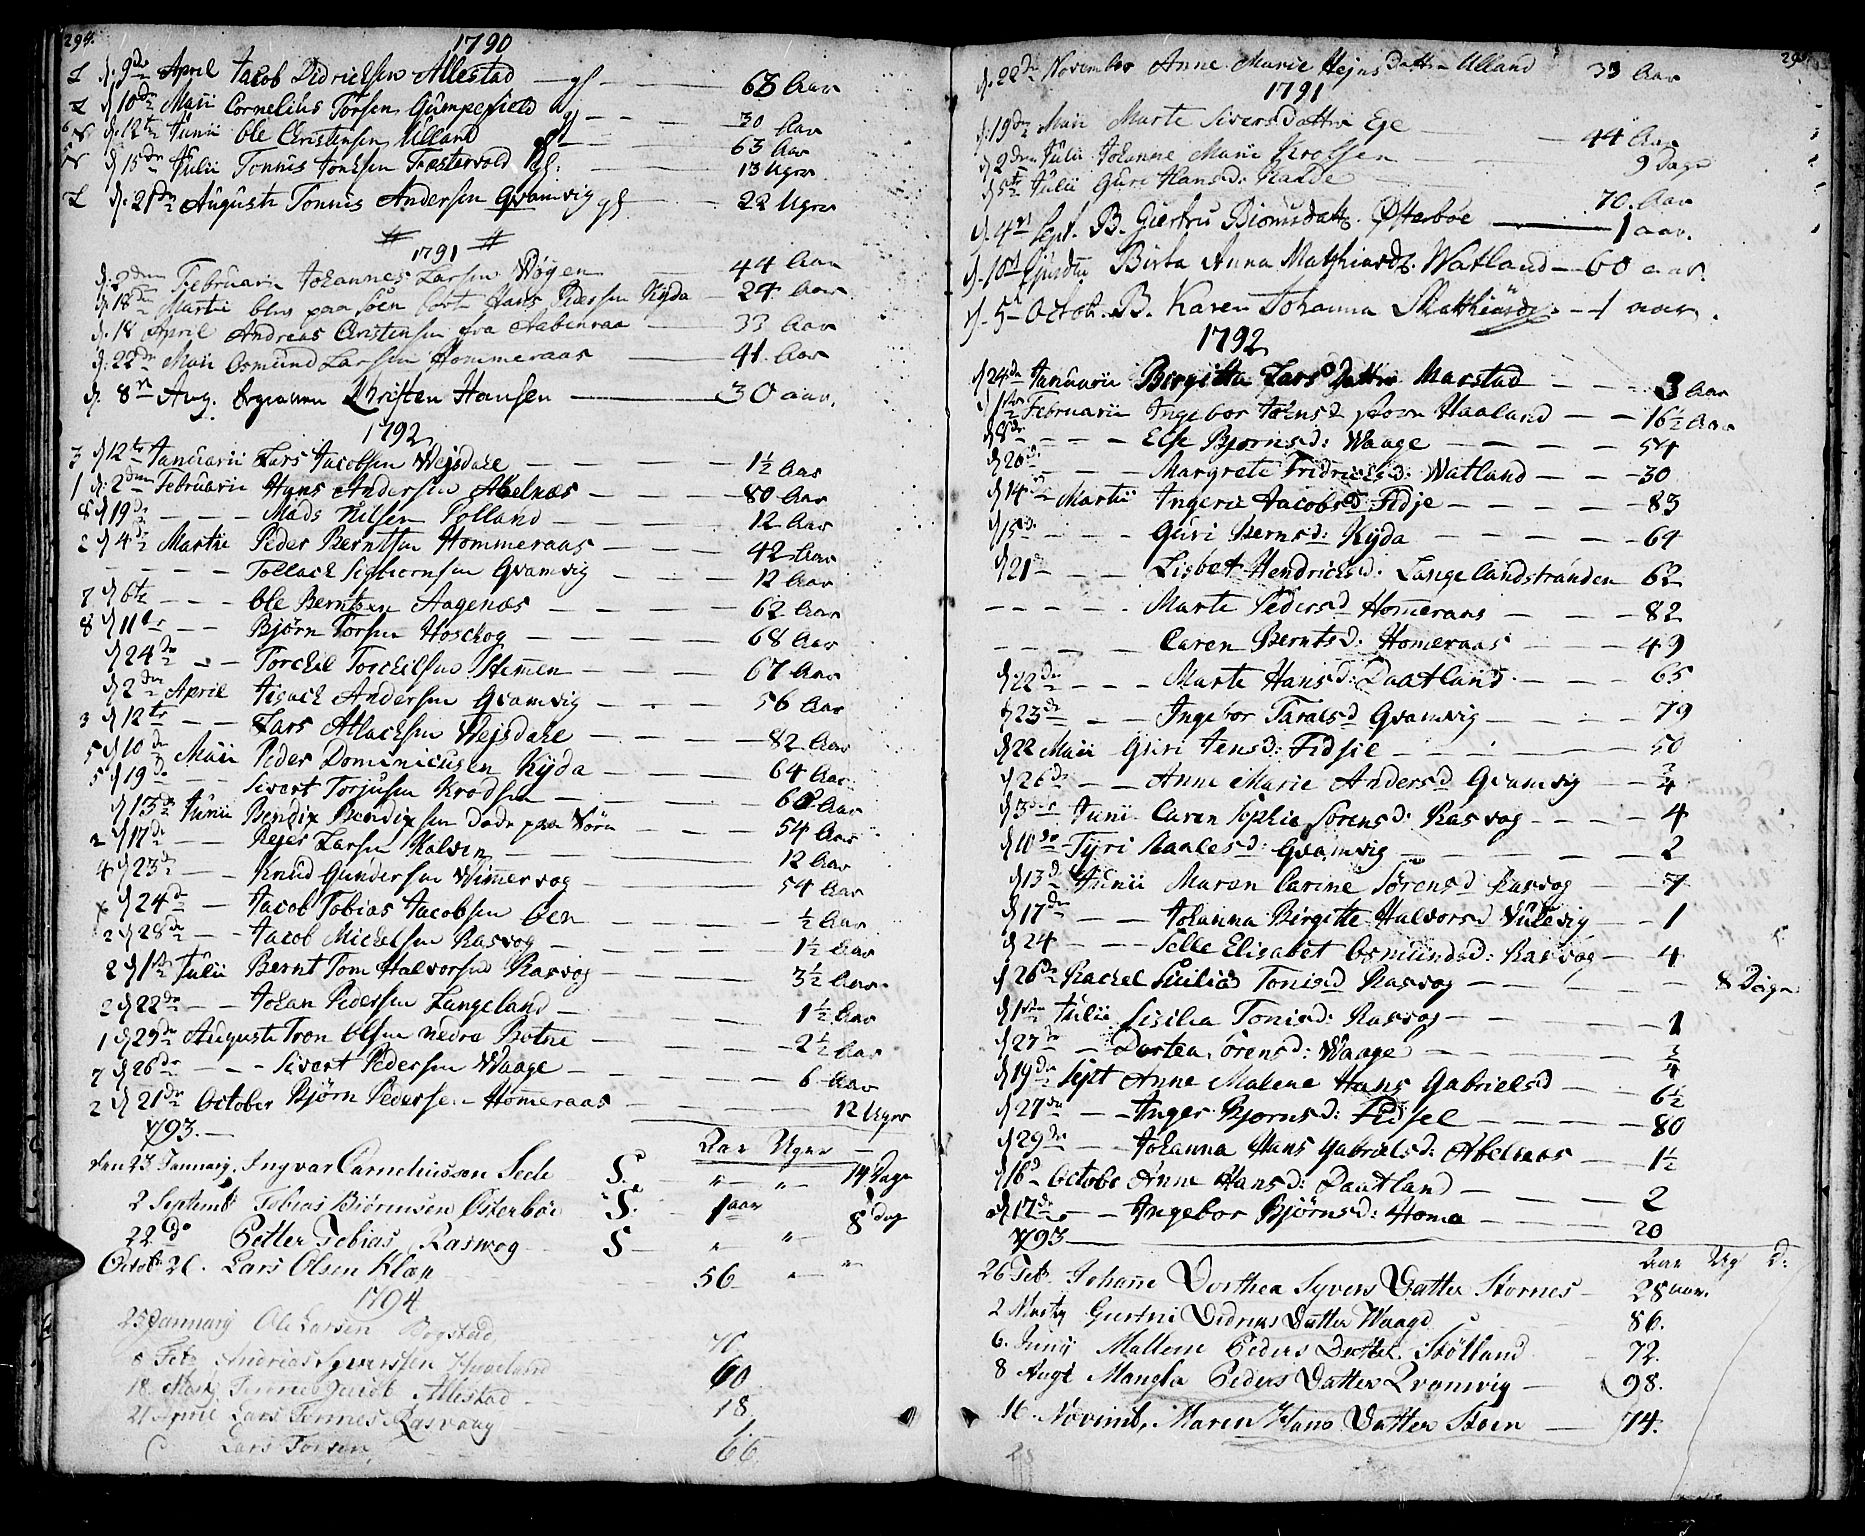 294.
1790
d. 9de April Jacob Didrichsen Allestad — gf — 63 Aar
d 10de Maii Cornelius Torsen Gumpefield gf — 30 Aar
d. 12te Junii Ole Christensen Ulland — 63 Aar
d 15de Julii Tonnis Tonessen — 13 Uger
d. 21de Augusti Tonnis Andersen Qvamvig gf — 22 Uger
1791
d. 2den Februarii Johannes Larsen Wogen — 44 Aar
d. 12de Martii blev paa Söen bort Hans Pedersen Kyda — 24 Aar
d. 18 April Andreas Christensen fra Aabenraa — 33 Aar
d. 22de Maii Osmund Larsen Hommeraas — 41 Aar
d. 8de Aug. begraven Christen Hansen — 30 aar.
1792
3 d 12te Januarii Lars Jacobsen Wejsdale — 1½ Aar
1 d. 2den Februarii Hans Andersen Abelnæs — 80 Aar
8 d 19de — Mads Nilsen Lolland — 12 Aar
2 d 4de Martii Peder Berntsen Hommeraas — 42 Aar
— Tollack Sigbiornsen Qvamvig — 12 Aar
7 d 6te — Ole Berntsen Aagenæs — 62 Aar
8 d 11te — Bjørn Torsen Hoschog — 68 Aar
d 24de — Torckel Torckelsen Stemen — 67 Aar
d 2den April Isach Andersen Qvamvig — 56 Aar
3 d 12te — Lars Atlacksen Wejsdale — 82 Aar
5 d 10de Maii Peder Dominicusen Kyda — 64 Aar
5 d 19de — Sivert Torjusen Krodsen — 68 Aar
d 13de Junii Bendix Bendixsen døde paa Wørn — 54 Aar
2 d 17de — Rejer Larsen Kalven — 12 Aar
4 d 23de — Knud Gundersen Wimervog — 54 Aar
x d 24de — Jacob Tobias Jacobsen Øen — ½ Aar
2 d 28de — Jacob Mickelsen Rasvog — 1½ Aar
2 d 1ste Julii Bernt Tom Halvorsen Rasvog — 3½ Aar
2 d 22de — Johan Pedersen Langeland — 1½ Aar
1 d 29de Augusti Tron Olsen nedre Botne — 2½ Aar
7 d 26de — Sivert Pedersen Waage — 6 Aar
2 d 21de October Bjørn Pedersen Homeraas — 12 Uger
1793. — Aar Uger
den 23 Januarij. Ingvar Corneliussøn Sede S. — " " 14 Dage
2 Septemb Tobias Biörensen Osterböe S. — 1 aar 8 dag
22 do Petter Tobias Raswog S — " " "
Octob 20. Lars Olsen Klæp — 56 "
1794
25 Januarij Ole Larsen Bogstad
8 Feb Andreas Syvertsen — 60
18 Martj Tennes Jacob Allestad — 18
21 April Lars Tennes Rasvaag — 1
Lars Torsen — 66.
d. 22de November Anne Marie Hejns datter Ulland 33 Aar
1791
d. 19de Maii Marte Siversdatter Ege — 44 Aar
d 2den Julii Johanne Marie Krossen — 9 dage
d 5te Julii Guri Hansd: Raade — 70. Aar
d. 4de Sept. B. Giertru Biornsdatt. Østerböe — 1 aar.
d. 10de Ejusdem Birta Anna Matthiasd. Watland — 60 aar.
d. 5 Octob. B. Karen Johanna Matthiasd. — 1 aar.
1792
d 24de Januarii Birgitta Lars Datter Marstad — 3 Aar
d 1ste Februarii Ingebor Johnsd Haaland — 16½ Aar
d 8de — Else Bjornsd: Waage — 54
d 20de — Margrete Fridrichsd: Watland — 30
d 14de Martii Ingeri Jacobsd: Fidje — 83
d 15de — Guri Bernsd: Kyda — 64
d 21 — Lisbet Hendrichsd: Langelandstranden — 62
— Marte Pedersd Homeraas — 82
— Caren Berntsd: Homeraas — 49
d 22de — Marte Hansd: Daatland — 65
d 23de — Ingebor Taraldsd Qvamvig — 79
d 22 Maii Guri Jensd: Fidsel — 50
d 26de — Anne Marie Andersd Qvamvig — ¾
d 3die Juni Caren Sophie Sorensd: Rasvog — 4
d 10de Tyri Aaalesd: Qvamvig — 2
d 13de Junii Maren Carine Sørensd Rasvog — 7
d 17de — Johanna Birgitte Halvorsd Vulevig — 1
d 24 — Selle Elisabet Osmundsd: Rasvog — 4
d 26de Rachel Sicilia Tonisd Rasvog — 8 Dage
d 1ste Julii Sicilia Tonisd: Rasvog — 1
d 27de — Dortea Sorensd: Waage — ¾
d 19de Sept Anne Malene Hans Gabrielsd — 6½
d 27de — Inger Bjornsd: Fidsel — 80
d 29de — Johanna Hans Gabrielsd: Abelnæs — 1½
d 16de Octobr Anne Hansd: Daatland — 2
d 17de — Ingebor Bjørnsd: Homa — 20
1793 — Aar Ug D:
26 Feb. Johane Dorthea Syvers Datter Stornes — 28 aar.
2 Martj Giertru Didriks Datter Waage — 86.
6. Junij Mallene Peders Datter Støtland — 72.
8 Augt Mangla Peders Datter Qvamvig — 98.
16 Novemb, Maren Hans Datter Steen — 74.